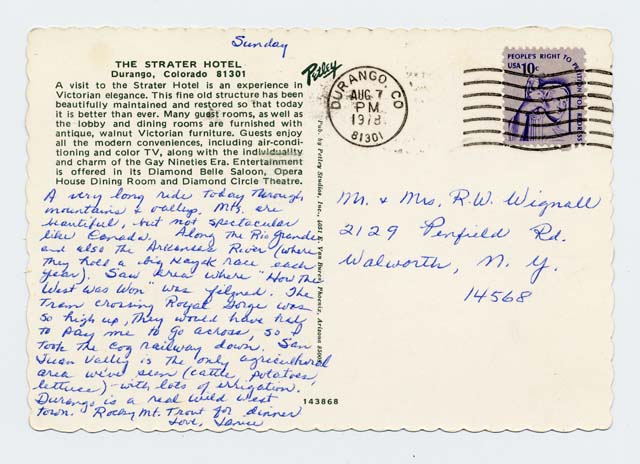 Sunday
THE STRATER HOTEL
Durango, Colorado 81301
A visit to the Strater Hotel is an experience in
Victorian elegance. This fine old structure has been
beautifully maintained and restored so that today
it is better than ever. Many guest rooms, as well as
the lobby and dining rooms are furnished with
antique, walnut Victorian furniture. Guests enjoy
all the modern conveniences, including air-condi-
tioning and color TV, along with the individuality
and charm of the Gay Nineties Era. Entertainment
is offered in its Diamond Belle Saloon, Opera
House Dining Room and Diamond Circle Theatre.
A very long ride today through
mountains & valleys. Mts. are
beautiful, but not spectacular
like Canada. Along the Rio Grande
and also the Arkansas River (where
they hold a big Kayak race each
year). Saw area where "How The
West Was Won" was filmed. The
Tram crossing Royal Gorge was
so high up, they would have had
to pay me to go across, so I
took the cog railway down. San
Juan Valley is the only agricultural
area we've seen (cattle, potatoes,
lettuce) - with lots of irrigation.
Durango is a real wild west
town. Rocky Mt. Trout for dinner
Love,
Petley
Pub. by Petley Studios, Inc., 4051 E. Van Buren, Phoenix, Arizona
143868
DURANGO, CO
AUG 7
PM
1978
81301
PEOPLE'S RIGHT TO PETITION FOR REDRESS
USA 10c
Mr. & Mrs. R.W. Wignall
2129 Penfield Rd.
Walworth, N.Y.
14568